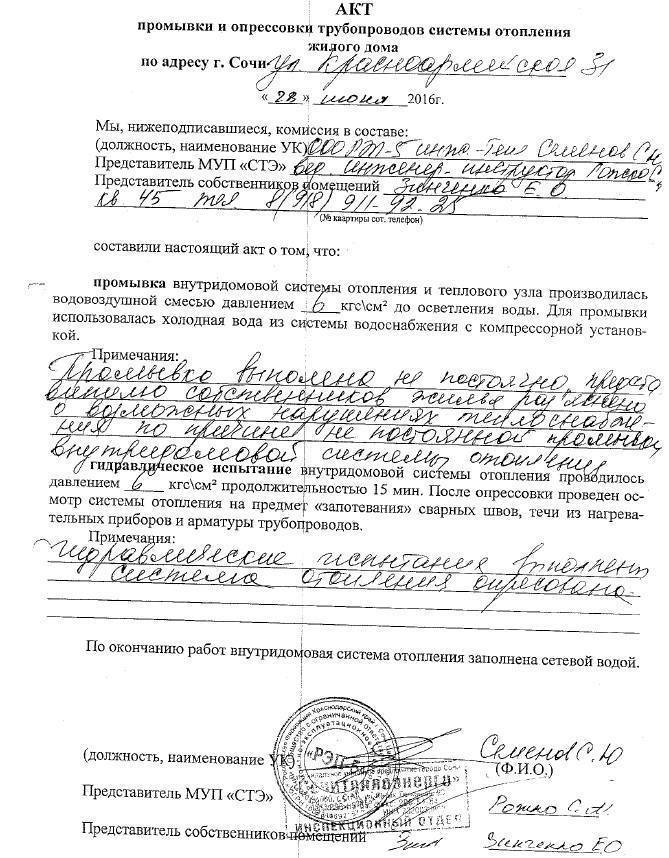 АКТ
промывки и опрессовки трубопроводов системы отопления
жилого дома
по адресу г. Сочи ул Красноармейская 31
«28» июня 2016г.
Мы, нижеподписавшиеся, комиссия в составе:
(должность, наименование УК) ООО РЭП-5 Семенов С.Ю
Представитель МУП «СТЭ» вед. инженер-инструктор Рожко С.
Представитель собственников помещений Зинченко Е.О
кв 45 тел 8(918) 911-92-25
(№ квартиры сот. телефон)
составили настоящий акт о том, что:
промывка внутридомовой системы отопления и теплового узла производилась
водовоздушной смесью давлением 6 кгс\см² до осветления воды. Для промывки
использовалась холодная вода из системы водоснабжения с компрессорной установ-
кой.
Примечания:
Промывка выполнена не постоячно, предста
вителю собственников жилья раз'яснено
о возможных нарушениях теплоснабже-
ния по причине не постоянной промывки
внутридомовой системы отопления
гидравлическое испытание внутридомовой системы отопления проводилось
давлением 6 кгс\см² продолжительностью 15 мин. После опрессовки проведен ос-
мотр системы отопления на предмет «запотевания» сварных швов, течи из нагрева-
тельных приборов и арматуры трубопроводов.
Примечания:
Гидравлические испытания выполнены
система отопления опресована.
По окончанию работ внутридомовая система отопления заполнена сетевой водой.
«РЭП-5»
(должность, наименование УК) Семенов С.Ю
(Ф.И.О.)
«Сочитеплоэнерго»
Представитель МУП «СТЭ» Рожко С.А.
ИНСПЕКЦИОННЫЙ ОТДЕЛ
Представитель собственников помещений Зинченко ЕО